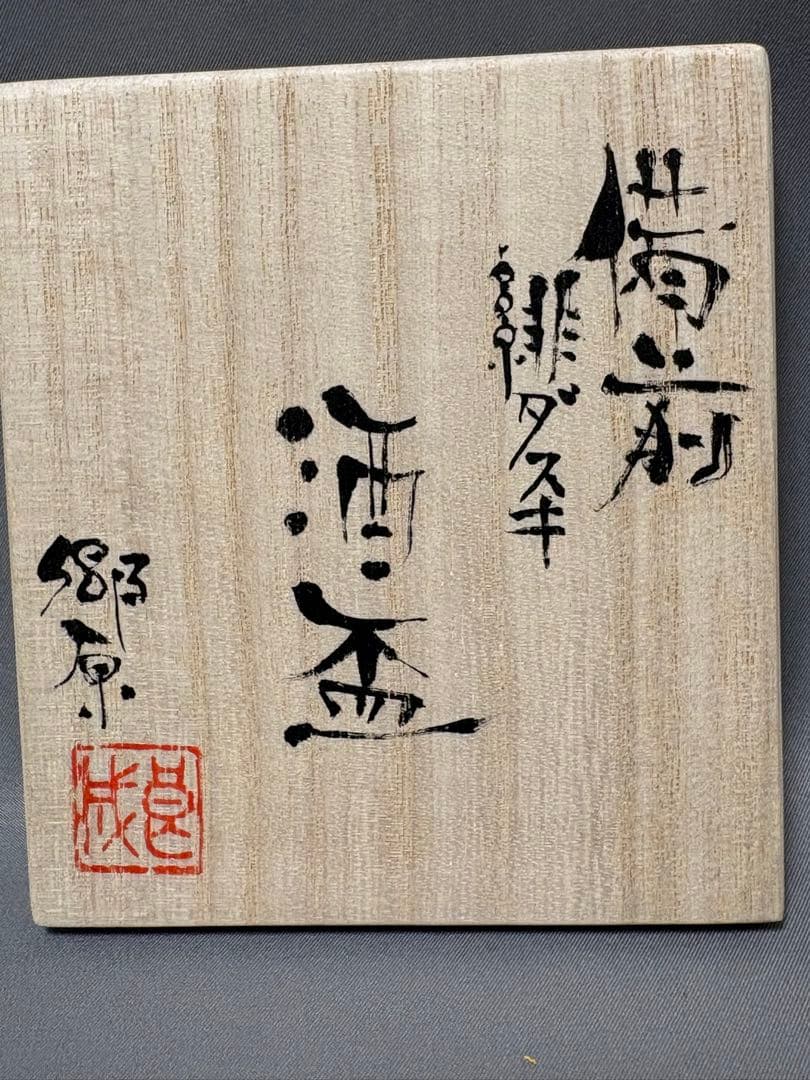 備前
緋ダスキ
酒盃
郷原